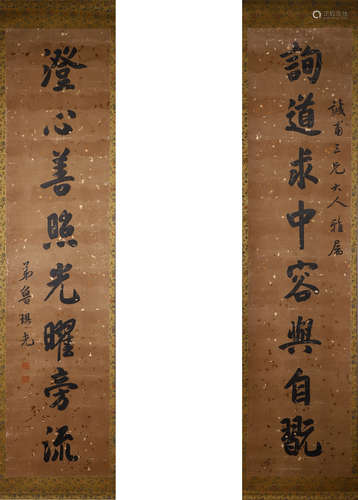 詢道求中容與自翫
誠甫三兄大人雅屬
澄心善照光曜旁流
弟魯琪光